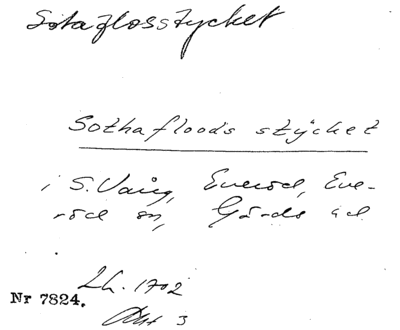 Sotaflosstycket
Sothafloods stÿcket
i S. Vång, Everöd, Eve-
röd sn, Gärds hd
Lh. 1702
Nr 7824.
Akt 3